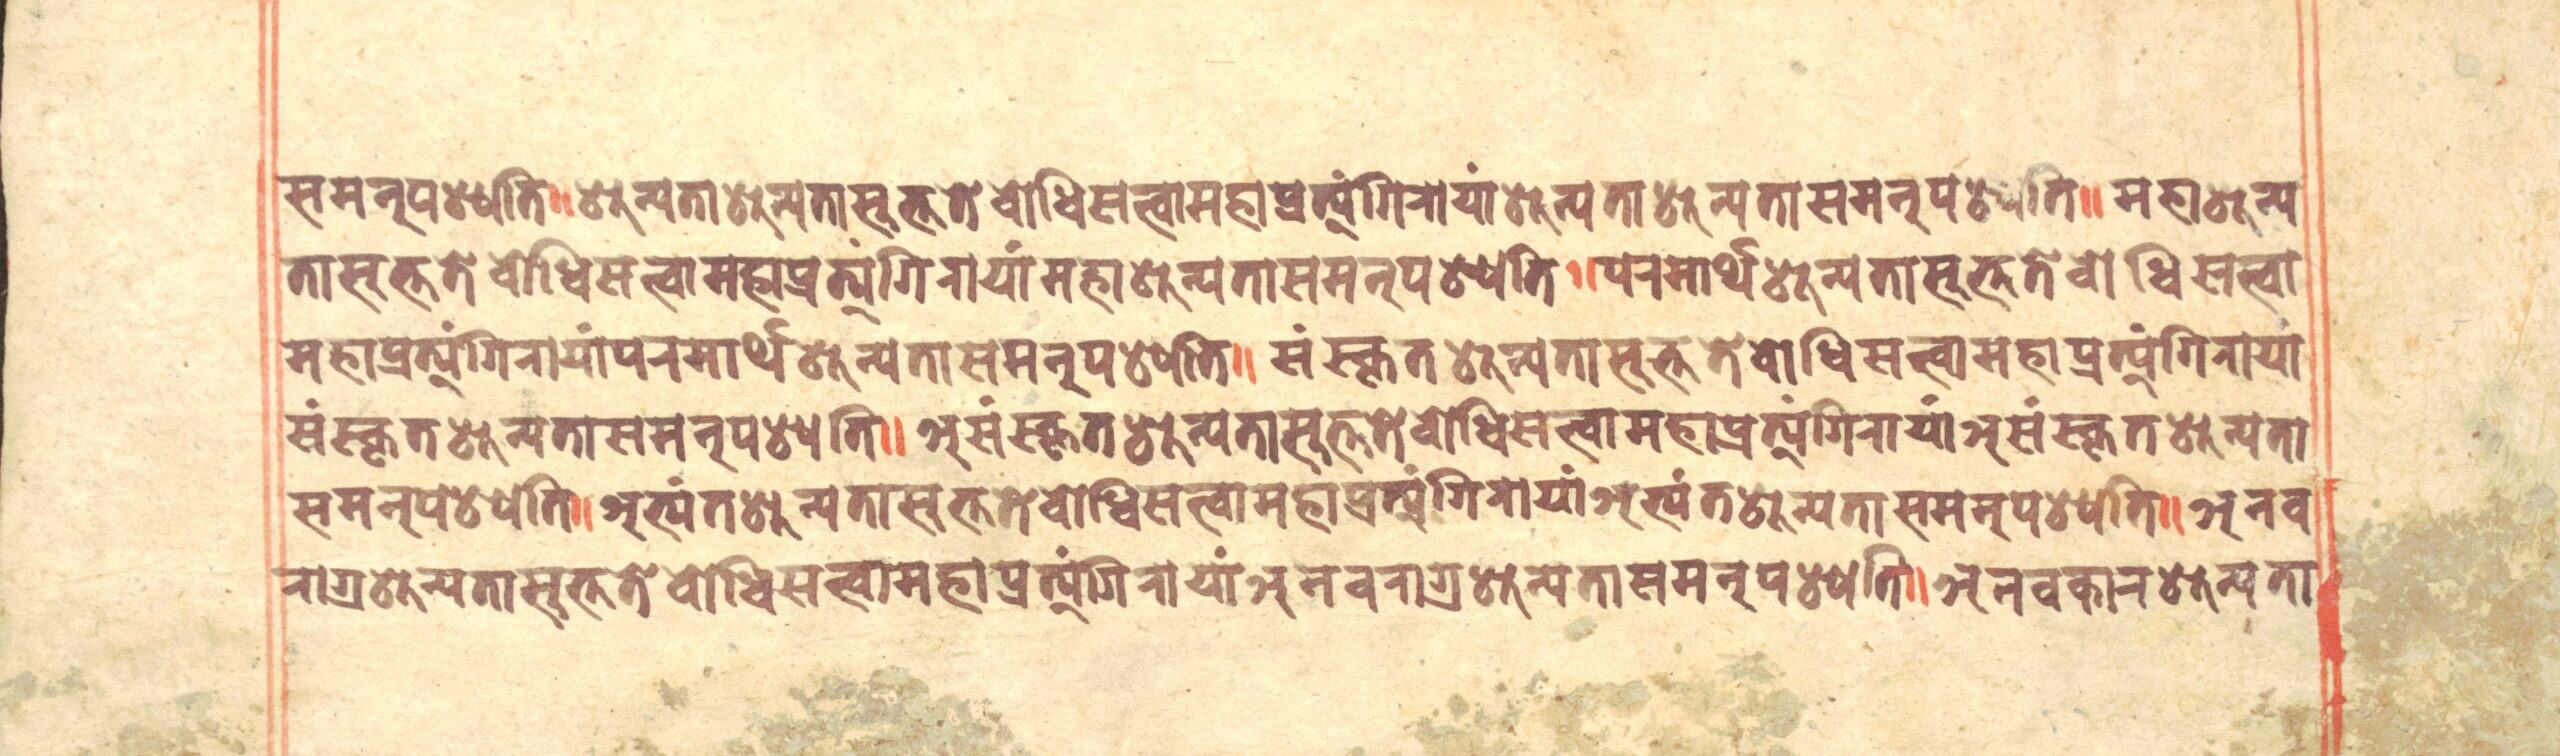 समनुपश्यति॥शुन्यताशुन्यतासुक्तते बोधिसत्वामहाप्रत्युंगिरायांशुन्यताशुन्यतासमनुपश्यति॥महाशुन्य
तासुक्तते बोधिसत्वामहाप्रत्युंगिरायांमहाशुन्यतासमनुपश्यति॥परमार्थशुन्यतासुक्तते बोधिसत्वा
महाप्रत्युंगिरायांपरमार्थशुन्यतासमनुपश्यति॥संस्कृतशुन्यतासुक्ततेबोधिसत्वामहाप्रत्युंगिरायां
संस्कृतशुन्यतासमनुपश्यति॥असंस्कृतशुन्यतासुक्ततेबोधिसत्वामहाप्रत्युंगिरायांअसंस्कृतशुन्यता
समनुपश्यति॥अत्यंतशुन्यतासुक्ततेबोधिसत्वामहाप्रत्युंगिरायांअत्यंतशुन्यतासमनुपश्यति॥अनव
राग्रशुन्यतासुक्तते बोधिसत्वामहाप्रत्युंगिरायांअनवराग्रशुन्यतासमनुपश्यति॥अनवकारशुन्यता